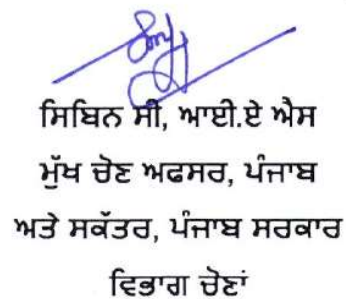 ਸਿਬਿਨ ਸੀ, ਆਈ.ਏ ਐਸ
ਮੁੱਖ ਚੋਣ ਅਫਸਰ, ਪੰਜਾਬ
ਅਤੇ ਸਕੱਤਰ, ਪੰਜਾਬ ਸਰਕਾਰ
ਵਿਭਾਗ ਚੋਣਾਂ